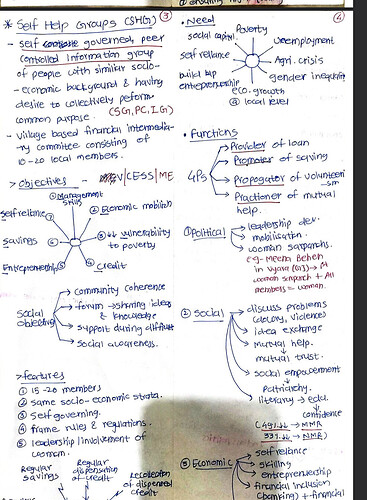 * Self Help Groups (SHG) ③
- self governed, peer
controlled Information group
of people with similar socio-
economic background & having
desire to collectively peform
common purpose. (SG, PC, IG)
- village based financial intermedia-
ry committee consisting of
10-20 local members.
> Objectives - V/CESS/ME
① Management
skills
② Economic mobilizn
③ ↓↓ vulnerability
to poverty
④ Credit
⑤ Entrepreneurship
⑥ Savings
⑦ Self reliance
Social
objectives
→ community coherence
→ forum → sharing ideas
& knowledge
→ support during difficult
→ social awareness.
> features
① 15-20 members
② same socio-economic strata.
③ self governing.
④ frame rules & regulations.
⑤ leadership/involvement of
woman.
Regular
savings
Regular
dispensation
of credit
recollection
of dispensed
credit
④
• Need
Poverty
social capital
unemployment
self reliance
Agri. crisis
build up
entrepreneurship
gender inequality
eco. growth
@ local level
• Functions
4Ps
→ Provider of loan
→ Promoter of saving
→ Propogator of volunteeri
-sm
→ Practioner of mutual
help.
① Political
→ leadership dev.
→ mobilisation.
→ woman sarpanchs.
eg- Meena Behen
in Vyara (GUJ) →
woman sarpanch + All
members = woman.
② Social
→ discuss problems
(dowry, violences)
→ idea exchange
→ mutual help.
↓
mutual trust.
→ social empowerment
↓
patriarchy.
→ literacy → edu.
↓
confidence
→ MMR
→ MMR)
③ Economic
→ self reliance
→ skilling
→ entrepreneurship
→ financial inclusion
(banking) + financial